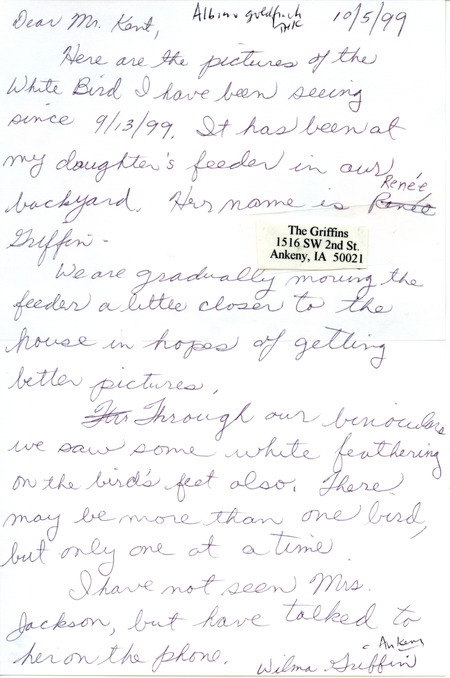 Dear Mr. Kent, Albino goldfinch 10/5/99
THK
Here are the pictures of the
White Bird I have been seeing
since 9/13/99. It has been at
my daughter's feeder in our
backyard. Her name is Renée Renée
Griffin -
The Griffins
1516 SW 2nd St.
Ankeny, IA 50021
We are gradually moving the
feeder a little closer to the
house in hopes of getting
better pictures.
For Through our binoculars
we saw some white feathering
on the bird's feet also. There
may be more than one bird,
but only one at a time.
I have not seen Mrs.
Jackson, but have talked to
her on the phone. Wilma Griffin - Ankeny